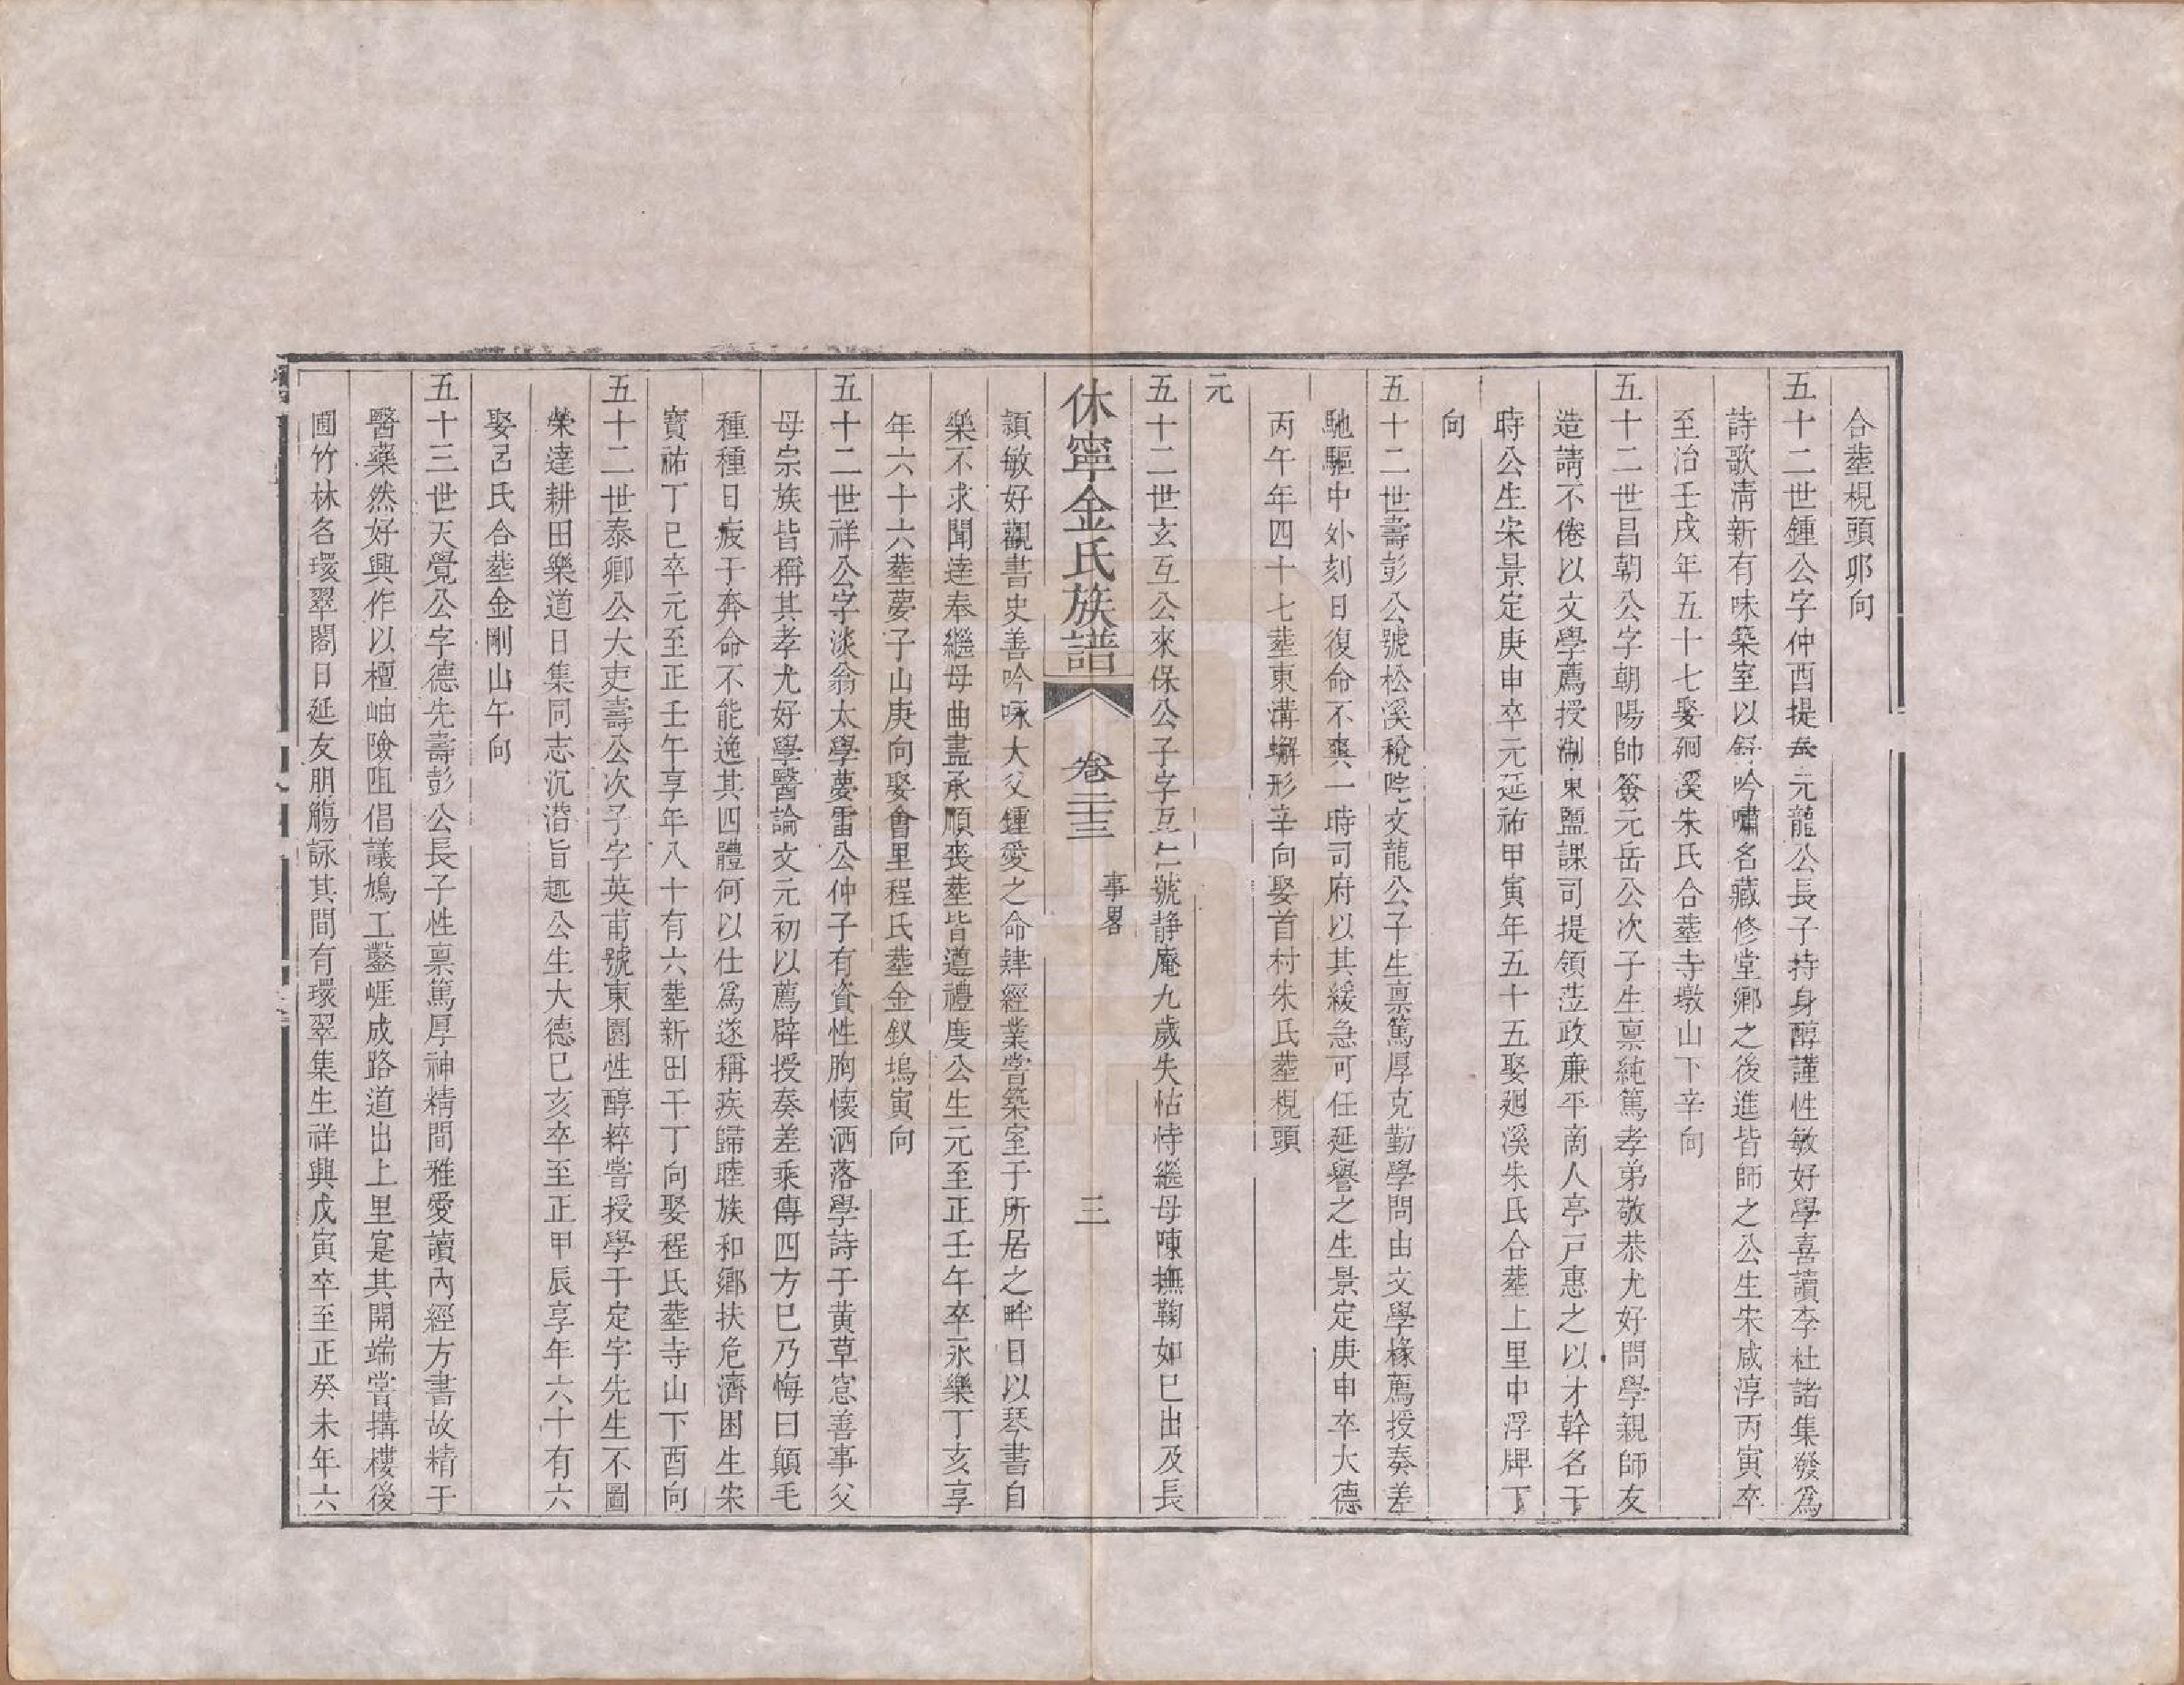 合塟梘頭邜向
五十二世鍾公字仲酉提㕔元龍公長子持身醇謹性敏好學喜讀李杜諸集發爲
詩歌淸新有味築室以𦧇吟嘯名藏修堂鄕之後進皆師之公生宋咸淳丙寅卒
至治壬戌年五十七娶𢌞溪朱氏合塟寺墩山下辛向
五十二世昌朝公字朝陽帥簽元岳公次子生禀純篤孝弟敬恭尤好問學親師友
造請不倦以文學薦授淛東鹽課司提領蒞政廉平商人亭戸惠之以才幹名于
時公生宋景定庚申卒元延祐甲寅年五十五娶𢌞溪朱氏合塟上里中浮牌丁
向
五十二世壽彭公號松溪稅院文龍公子生禀篤厚克勤學問由文學椽薦授奏差
馳驅中外刻日復命不爽一時司府以其緩急可任延譽之生景定庚申卒大德
丙午年四十七塟東溝蠏形辛向娶首村朱氏塟梘頭
元
五十二世玄互公來保公子字互仁號静庵九歲失怙恃繼母陳撫鞠如巳出及長
休寧金氏族譜 卷二十三 事畧 三
頴敏好觀書史善吟咏大父鍾愛之命肆經業嘗築室于所居之畔日以琴書自
樂不求聞逹奉繼母曲盡承順䘮塟皆遵禮度公生元至正壬午卒永樂丁亥享
年六十六塟夢子山庚向娶會里程氏塟金釵塢寅向
五十二世祥公字淡翁太學夢雷公仲子有資性胸懷洒落學詩于黄草窓善事父
母宗族皆稱其孝尤好學醫論文元初以薦辟授奏差乘傳四方巳乃悔曰顛毛
種種日疲于奔命不能逸其四體何以仕爲遂稱疾歸睦族和鄕扶危濟困生宋
寶祐丁巳卒元至正壬午享年八十有六塟新田干丁向娶程氏塟寺山下酉向
五十二世泰卿公大吏壽公次子字英甫號東園性醇粹嘗授學于定宇先生不圖
榮達耕田樂道日集同志沉潜旨趣公生大德巳亥卒至正甲辰享年六十有六
娶呂氏合塟金剛山午向
五十三世天覺公字德先壽彭公長子性禀篤厚神精間雅愛讀內經方書故精于
醫藥然好興作以檀岫險阻倡議鳩工鑿崕成路道出上里寔其開端嘗搆樓後
圃竹林名環翠閣日延友朋觴詠其間有環翠集生祥興戊寅卒至正癸未年六